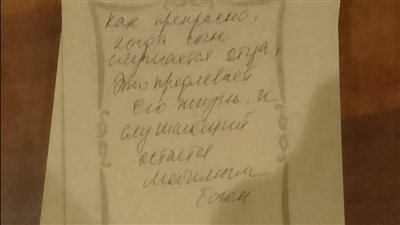 Как прекрасно,
когда сын
слушается отца,
Это продлевает
его жизнь, и
слушающий
остается
любимым
Богом